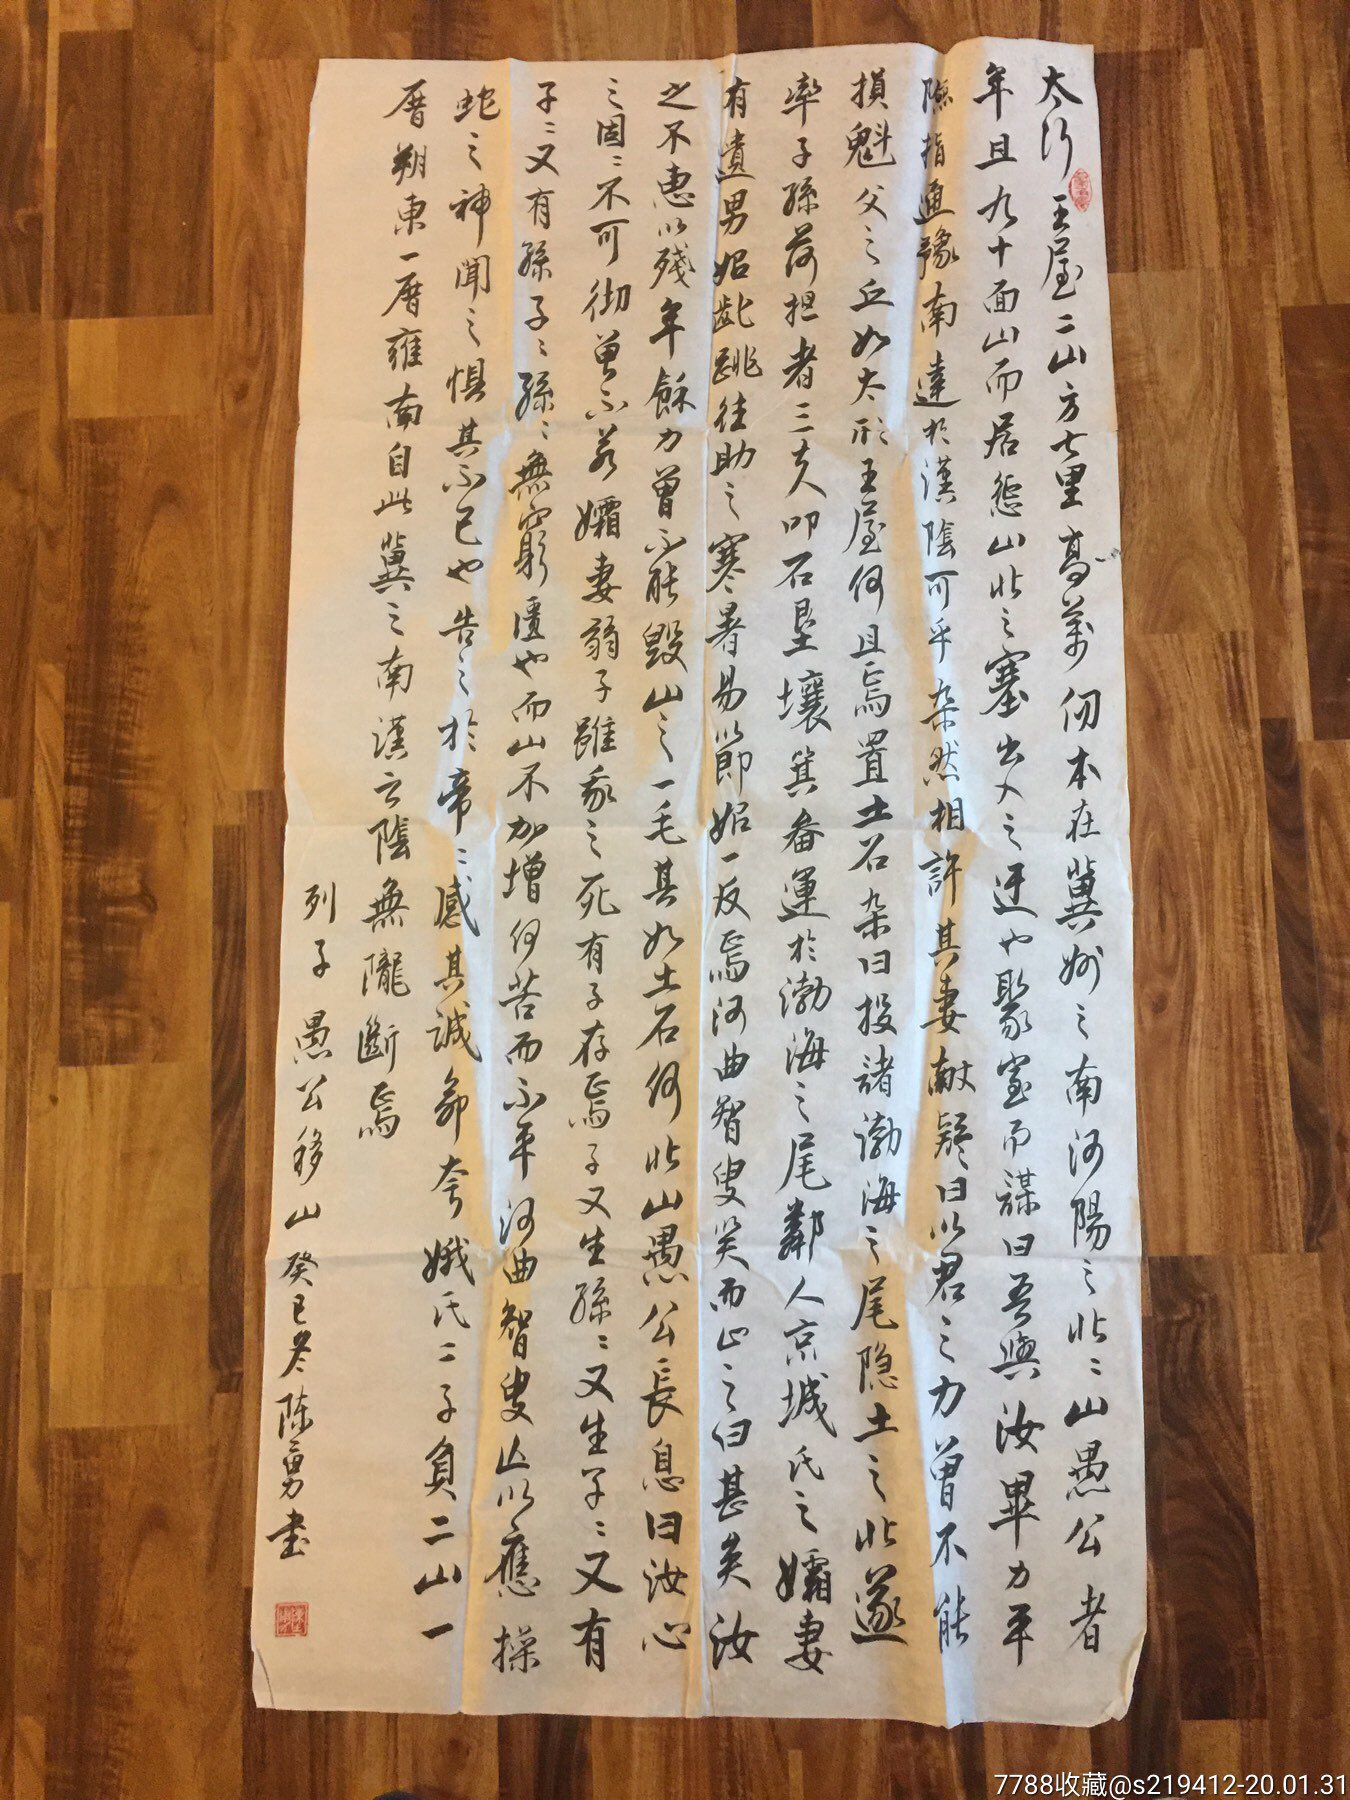 太行王屋二山方七里高萬仞本在冀州之南河陽之北〻山愚公者
年且九十面山而居惩山北之塞出入之迂也聚室而謀曰吾與汝畢力平
險指通豫南達於漢陰可乎杂然相許其妻献疑曰以君之力曾不能
損魁父之丘如太形王屋何且焉置土石杂曰投諸渤海之尾隐土之北遂
率子孫荷担者三夫叩石垦壤箕畚運於渤海之尾鄰人京城氏之孀妻
有遺男始齔跳往助之寒暑易節始一反焉河曲智叟笑而止之曰甚矣汝
之不惠以殘年餘力曾不能毀山之一毛其如土石何北山愚公長息曰汝心
之固〻不可彻曾不若孀妻弱子雖我之死有子存焉子又生孫〻又生子〻又有
子〻又有孫子〻孫〻無窮匱也而山不加增何苦而不平河曲智叟亡以應操
蛇之神聞之懼其不已也告之於帝〻感其誠命夸娥氏二子負二山一
厝朔東一厝雍南自此冀之南漢之陰無隴斷焉
列子愚公移山癸巳冬陈勇書
7788收藏@s219412-20.01.31